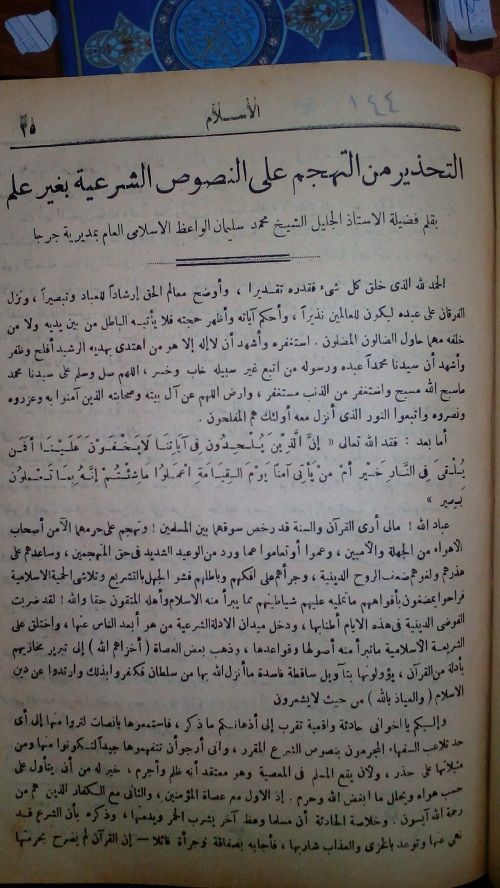 ١٤٤
الاسلام
٣٥
التحذير من التهجم على النصوص الشرعية بغير علم
بقلم فضيلة الاستاذ الجليل الشيخ محمد سليمان الواعظ الاسلامى العام بمديرية جرجا
الحمد لله الذى خلق كل شىء فقدره تقديرا ، وأوضح معالم الحق إرشاداً للعباد وتبصيراً ، ونزل
الفرقان على عبده ليكون للعالمين نذيراً ، وأحكم آياته وأظهر حجته فلا يأتيه الباطل من بين يديه ولا من
خلفه مهما حاول الضالون المضلون . استغفره وأشهد أن لا إله إلا هو من اهتدى بهديه الرشيد أفلح وظفر
وأشهد أن سيدنا محمداً عبده ورسوله من اتبع غير سبيله خاب وخسر ، اللهم صل وسلم على سيدنا محمد
ماسبح الله مسبح واستغفر من الذنب مستغفر ، وارض اللهم عن آل بيته وصحابته الذين آمنوا به وعزروه
ونصروه واتبعوا النور الذى أنزل معه أولئك هم المفلحون .
أما بعد : فقد قال الله تعالى « إنَّ الَّذِيْنَ يُلْحِدُونَ فِى آيَاتِنَا لَا يَخْفَوْنَ عَلَيْنَا أَفَمَنْ
يُلْقَى فِى النَّارِ خَيْرٌ أَمْ مَنْ يَأْتِى آمِنًا يَوْمَ الْقِيَامَةِ اعْمَلُوا مَا شِئْتُمْ إِنَّهُ بِمَا تَعْمَلُونَ
بَصِير »
عباد الله ! مالى أرى القرآن والسنة قد رخص سوقهما بين المسلمين ! وتهجم على حرمهما الآمن أصحاب
الأهواء من الجهلة والأميين ، وعموا أو تعاموا عما ورد من الوعيد الشديد فى حق المتهجمين ، وساعدهم على
هذرهم ولغوهم ضعف الروح الدينية ، وجرأهم على افكهم وباطلهم فشو الجهل بالتشريع وتلاشى الحمية الاسلامية
فراحوا يمضغون بأفواههم ما تمليه عليهم شياطينهم مما يبرأ منه الاسلام وأهله المتقون حقا والله ! لقد ضربت
الفوضى الدينية فى هذه الايام أطنابها ، ودخل ميدان الادلة الشرعية من هو أبعد الناس عنها ، واختلق على
الشريعة الاسلامية ما تتبرأ منه أصولها وقواعدها ، وذهب بعض العصاة ( أخزاهم الله ) إلى تبرير مخازيهم
بأدلة من القرآن ، يؤولونها بتآويل ساقطة فاسدة ما أنزل الله بها من سلطان فكفروا بذلك وارتدوا عن دين
الاسلام ( والعياذ بالله ) من حيث لا يشعرون
وإليكم يا اخوانى حادثة واقعية تقرب إلى أذهانكم ما ذكر ، فاستمعوها بإنصات لتروا منها إلى أى
حد تلاعب السفهاء المجرمون بنصوص الشرع المقرر ، وانى أرجو أن تتفهموها جيداً لتكونوا منها ومن
مثيلاتها على حذر ، ولأن يقع المسلم فى المعصية وهو معتقد أنه ظلم وأجرم ، خير له من أن يتأول على
حسب هواه ويحلل ما ابغض الله وحرم . إذ الاول مع عصاة المؤمنين ، والثانى مع الكفار الذين هم من
رحمة الله آيسون . وخلاصة الحادثة أن مسلما وعظ آخر يشرب الخمر ويدمنها ، وذكره بأن الشرع قد
نهى عنها وتوعد بالخزى والعذاب شاربها ، فأجابه بصفاقة وجرأة قائلا — إن القرآن لم يصرح بحرمتها